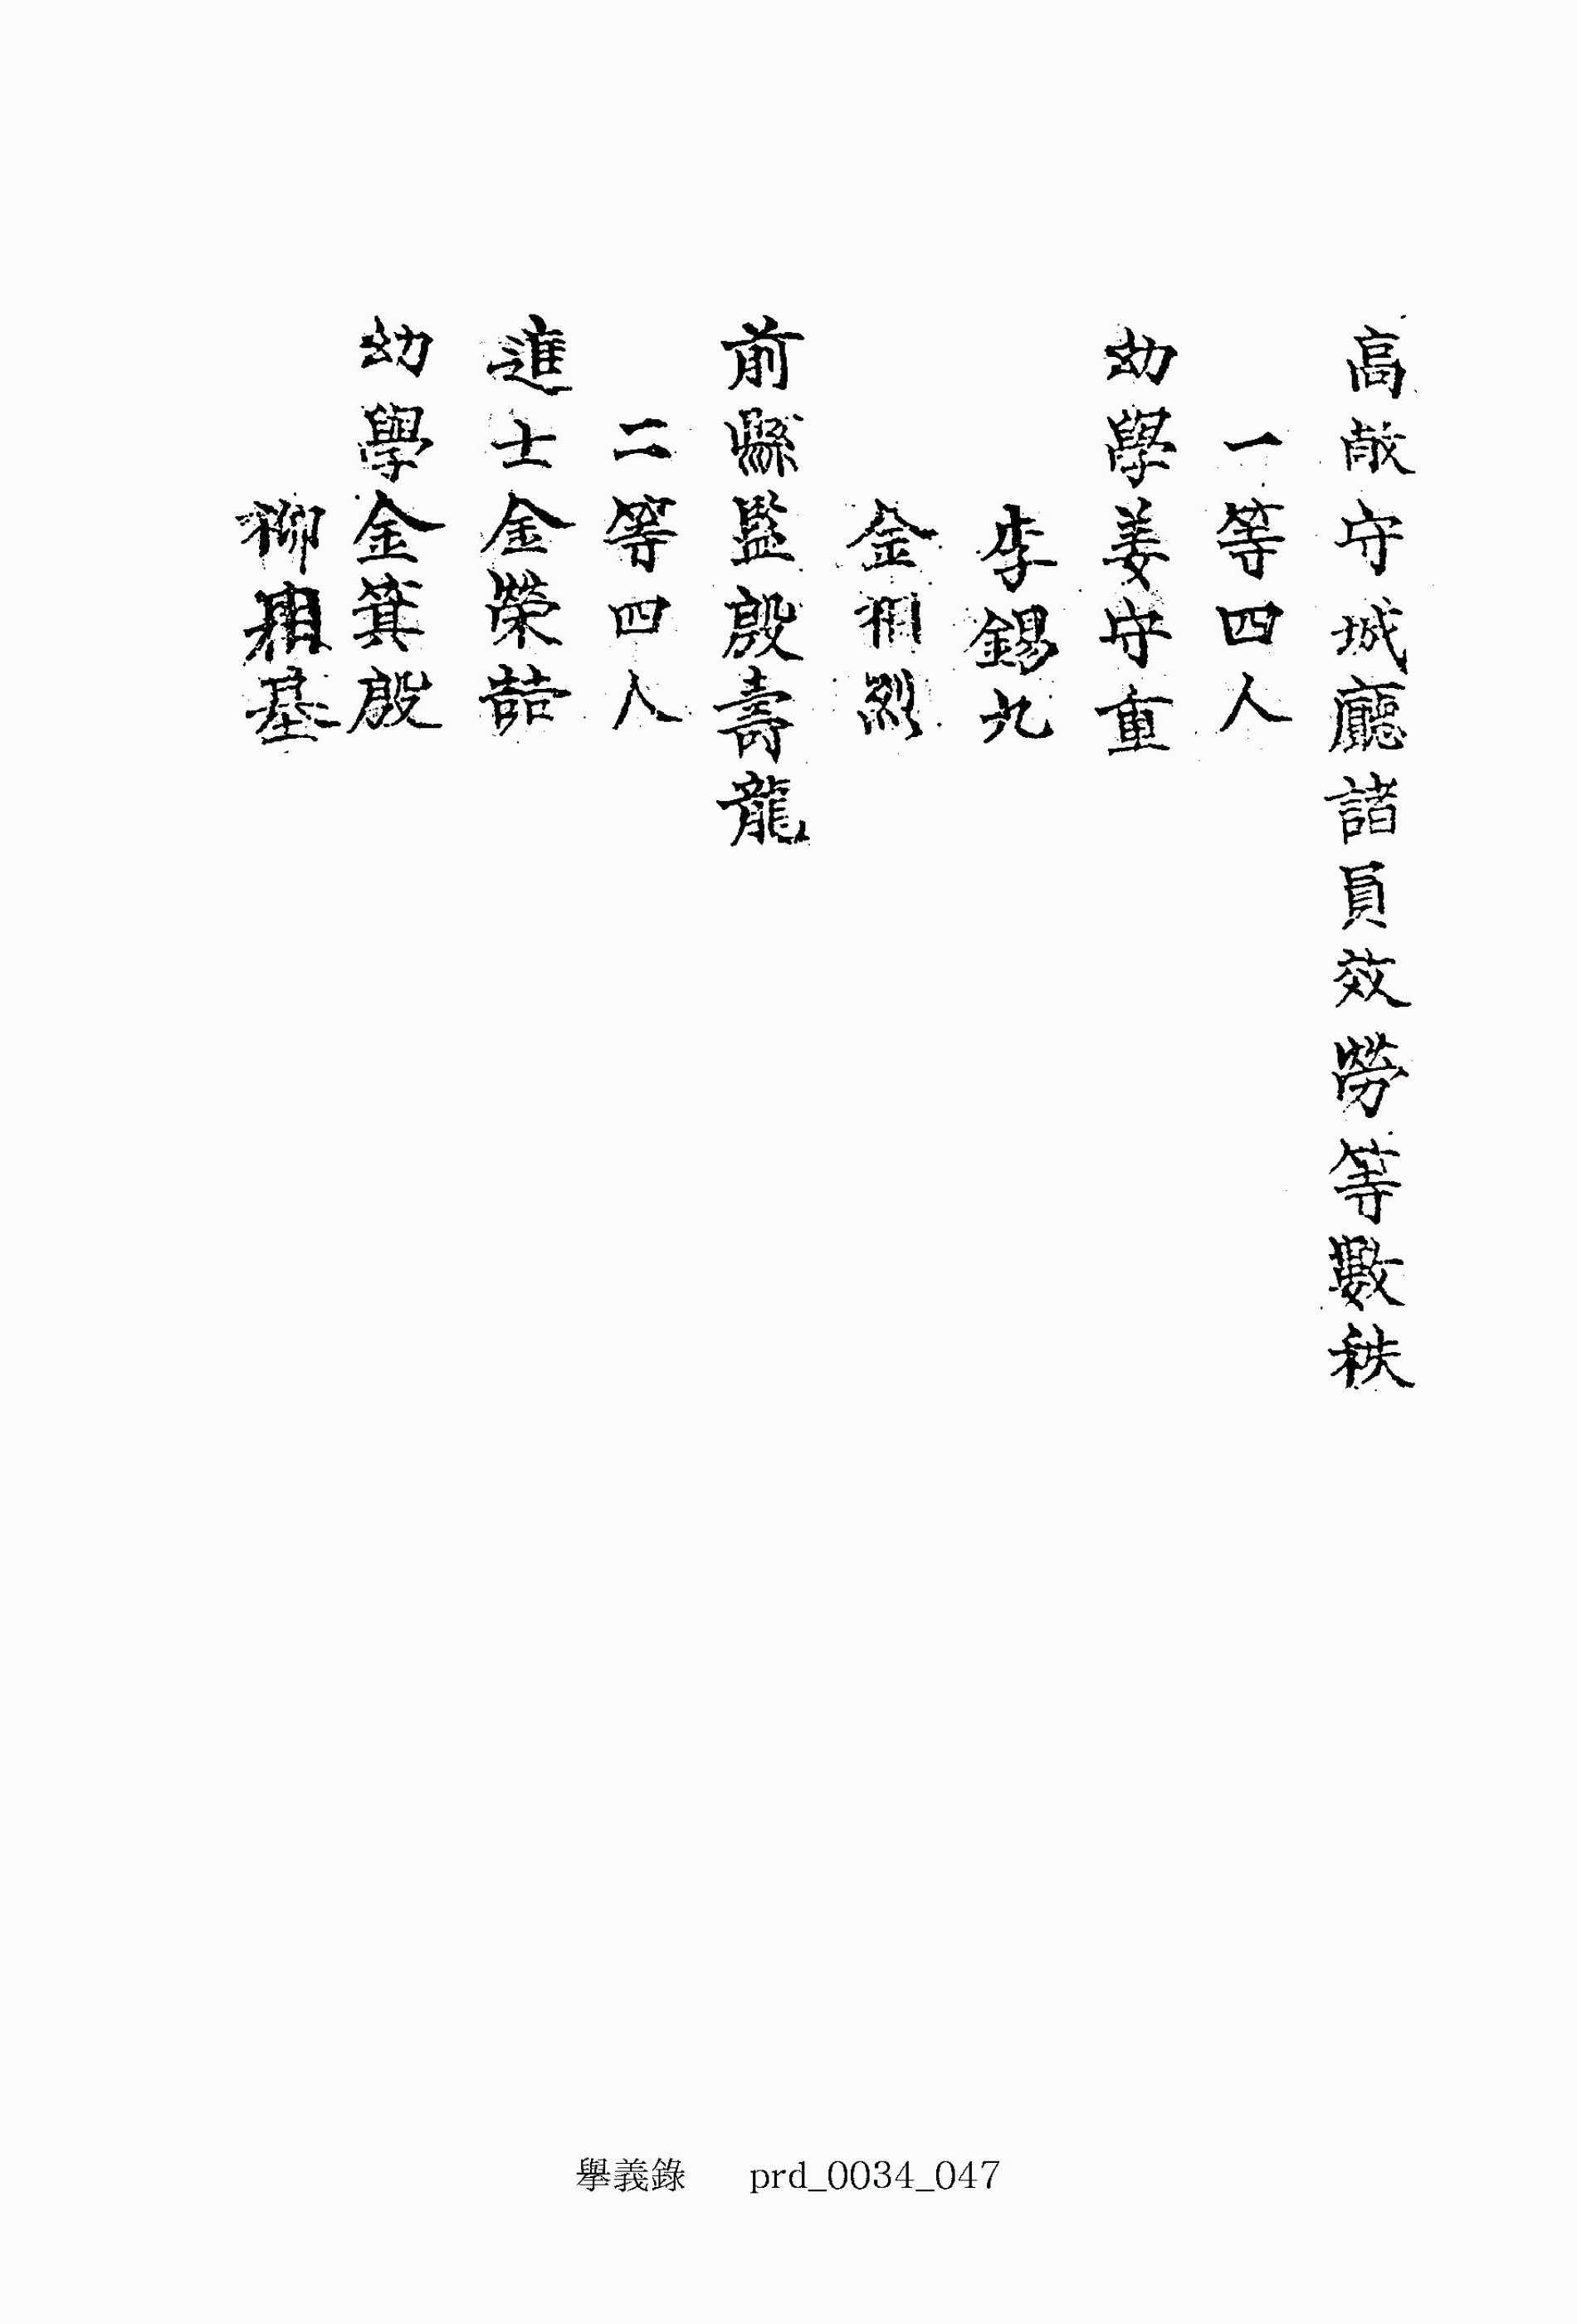 高敞守城廳諸員效勞等數秩
一等四人
幼學姜守重
李錫九
金相烈
前縣監殷壽龍
二等四人
進士金榮喆
幼學金箕殷
柳相基
擧義錄 prd_0034_047